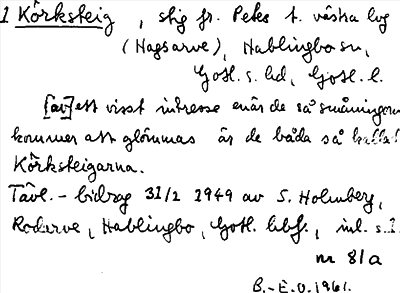 1 Körksteig, stig fr. Petes t. västra lug
(Hagsarve), Hablingbo sn,
Gotl. s. hd, Gotl. l.
[av] ett visst intresse enär de så småningom
kommer att glömmas är de båda så kallat
Körksteigarna.
Tävl.-bidrag 31/1 1949 av S. Holmberg,
Roderve, Hablingbo, Gotl. lbf., inl. s. 2.
nr 81a
B.-E.O. 1961.